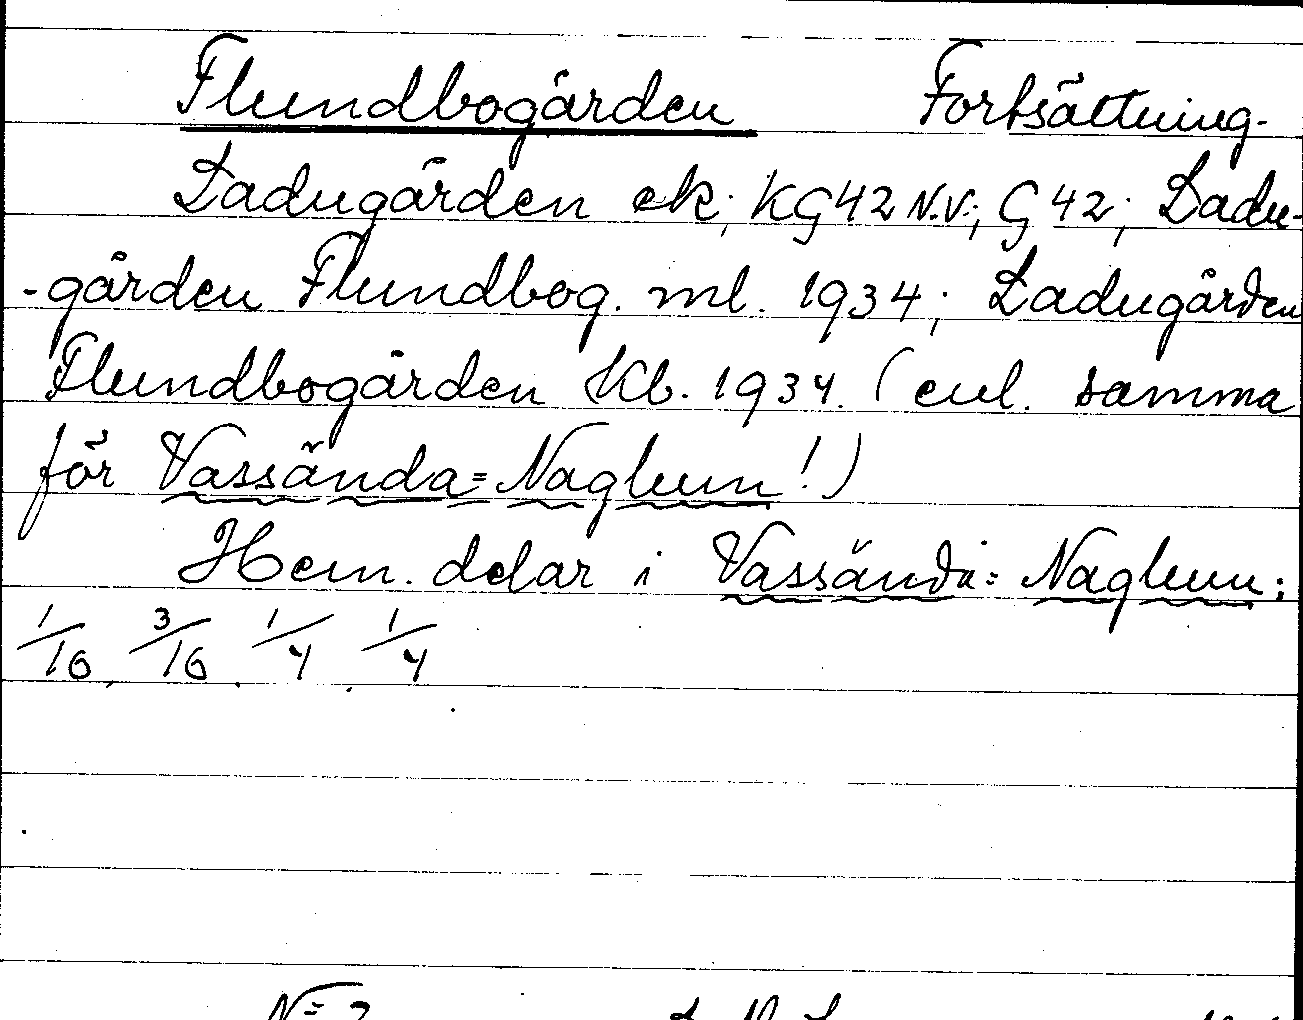 Flundbogården Fortsättning.
Ladugården ek; KG42 N.V.; G 42; Ladu-
-gården Flundbog. ml. 1934; Ladugården
Flundbogården Kb. 1934. (enl. samma
för Vassända=Naglum!)
Hem. delar i Vassända=Naglum:
1/16, 3/16, 1/4, 1/4